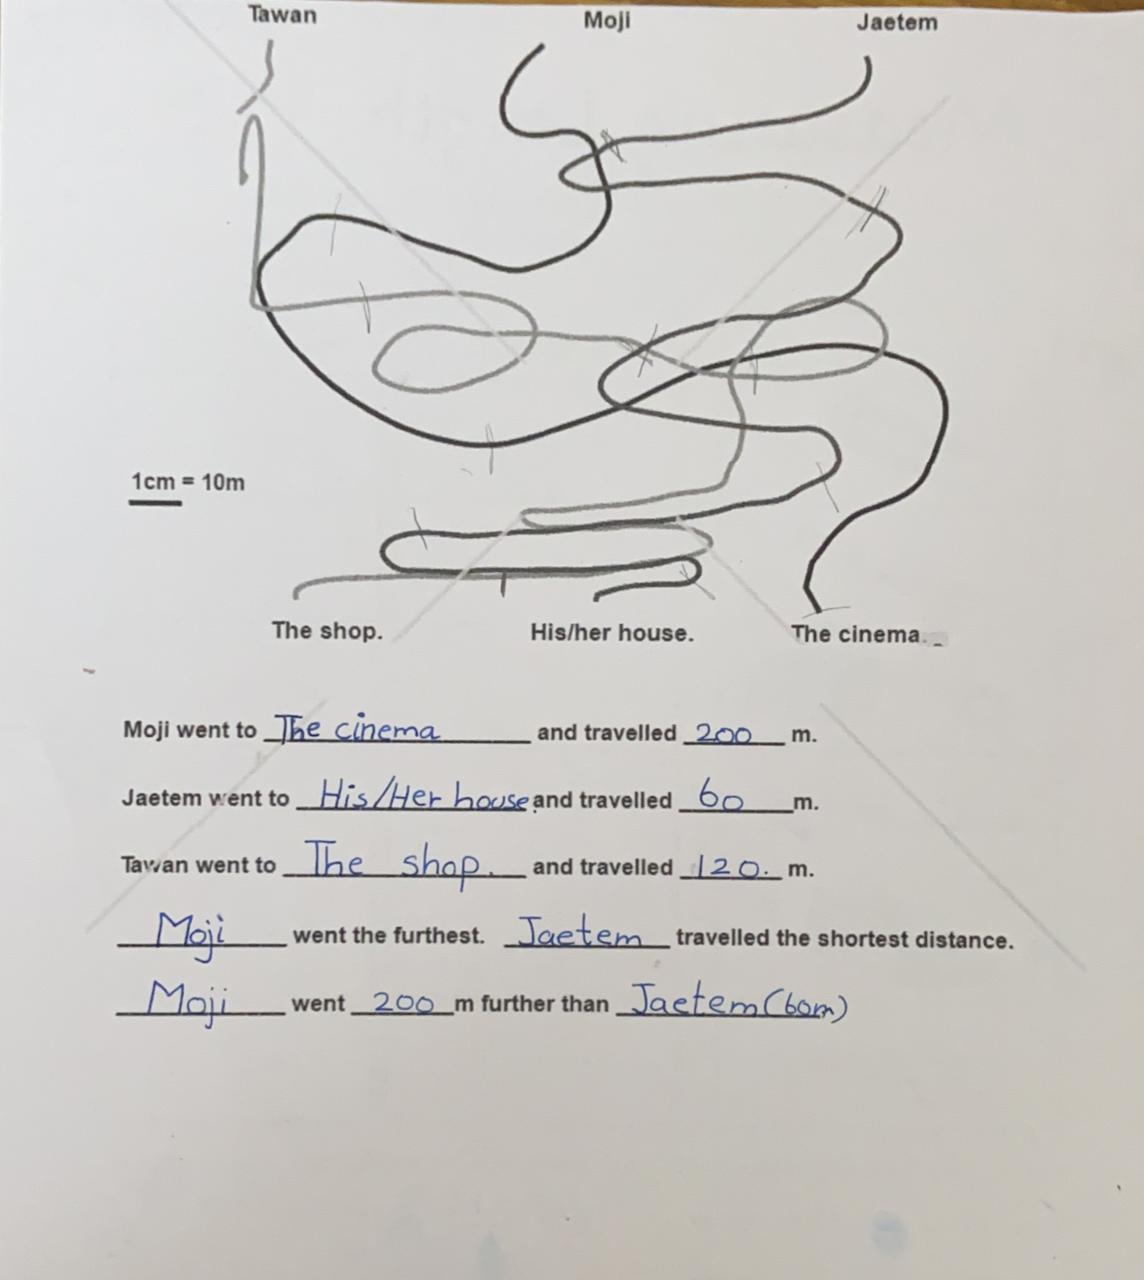 Tawan Moji Jaetem
1cm = 10m
The shop. His/her house. The cinema.
Moji went to The cinema and travelled 200 m.
Jaetem went to His/Her house and travelled 60 m.
Tawan went to The shop. and travelled 120. m.
Moji went the furthest. Jaetem travelled the shortest distance.
Moji went 200 m further than Jaetem (60m)